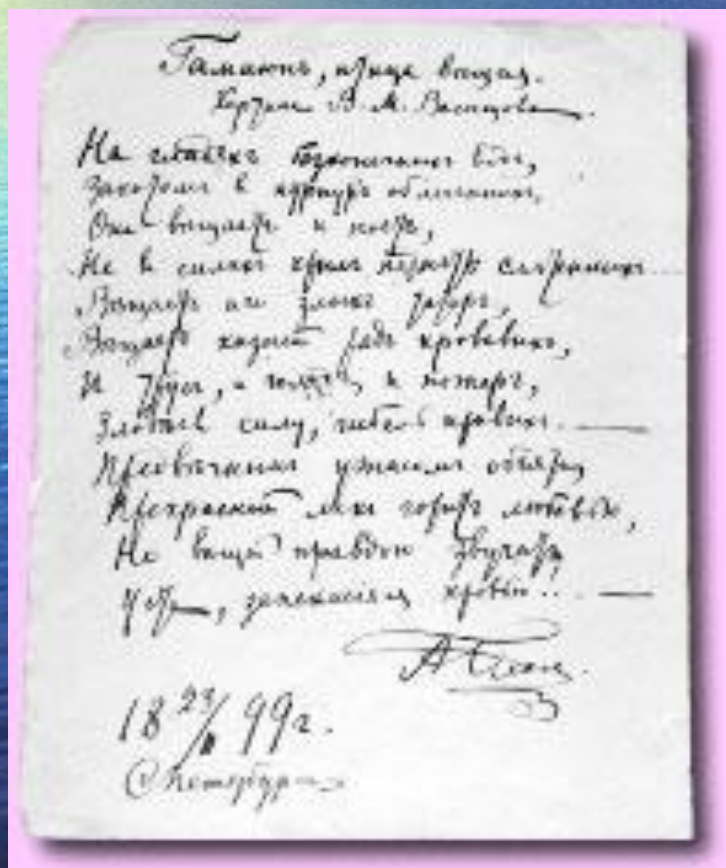 Гамаюнъ, птица вѣщая.
Картина В. М. Васнецова
На гладяхъ безконечныхъ водъ,
Закатомъ в пурпуръ облеченныхъ,
Она вѣщаетъ и поетъ,
Не в силахъ крылъ поднять смятенныхъ...
Вѣщаетъ иго злыхъ татаръ,
Вѣщаетъ казней рядъ кровавыхъ,
И трусъ, и голодъ, и пожаръ,
Злодѣевъ силу, гибель правыхъ. —
Предвѣчнымъ ужасомъ объятъ,
Прекрасный ликъ горитъ любовью,
Но вѣщей правдою звучатъ
Уста, запекшіяся кровью!.. —
А Блокъ.
18 23/II 99 г.
С.Петербургъ.